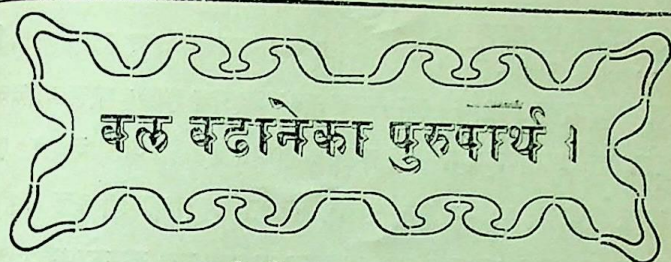 बल बढानेका पुरुषार्थ ।